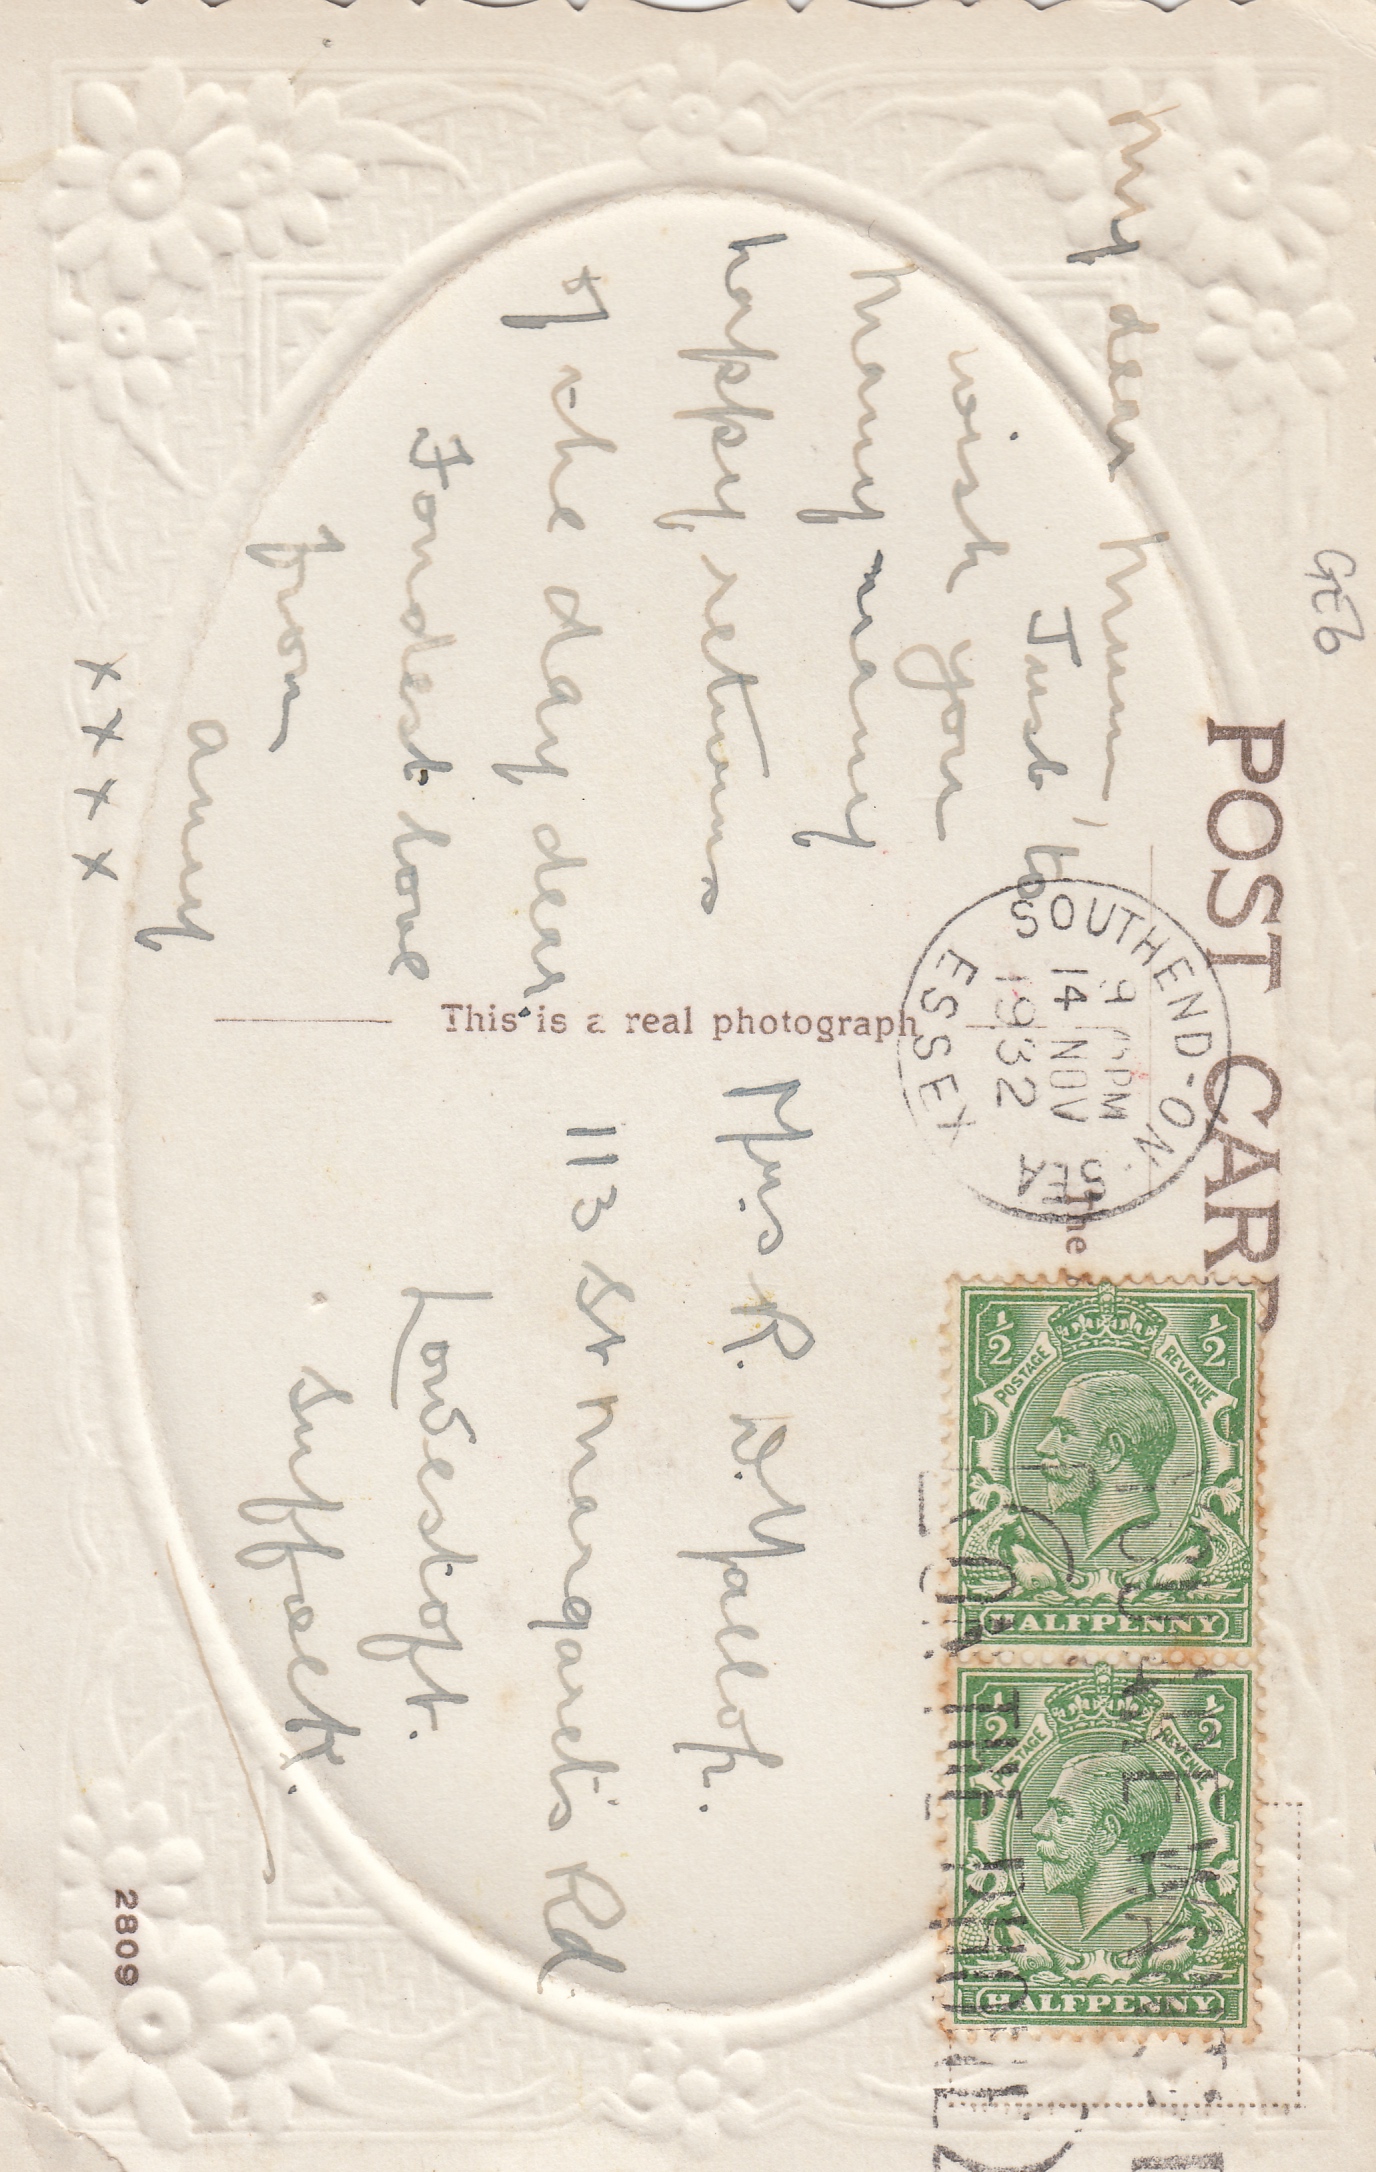 GEb
POST CARD
My dear Mum,
Just to
wish you
many many
happy returns
of the day dear
Fondest love
from
Amy
x x x x
This is a real photograph
SOUTHEND-ON-SEA
ESSEX
PM
14 NOV
1932
The
½ ½
POSTAGE REVENUE
HALFPENNY
½ ½
POSTAGE REVENUE
HALFPENNY
THE
Mrs R. D. Yallop.
113 St Margaret's Rd
Lowestoft.
Suffolk.
2809